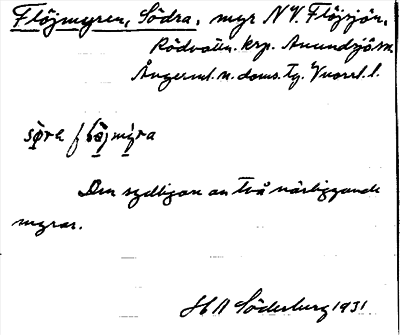 Flöjmyren, Södra, myr NV. Flöjsjön,
Rödvattn. krp. Anundsjö sn.
Ångerml. n. doms. tg. Vnorrl. l.
sø̠ra flø̠jmy̠ra
Den sydligare av två närliggande
myrar.
H A Söderberg 1931